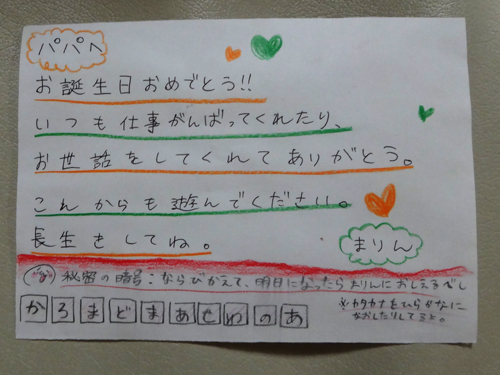 パパへ
お誕生日おめでとう!!
いつも仕事がんばってくれたり、
お世話をしてくれてありがとう。
これからも遊んでください。
長生きしてね。
まりん
秘密の暗号:ならびかえて、明日になったらまりんにおしえるべし
※カタカナをひらがなに
なおしたりしてると。
かろまどまあせわのあ